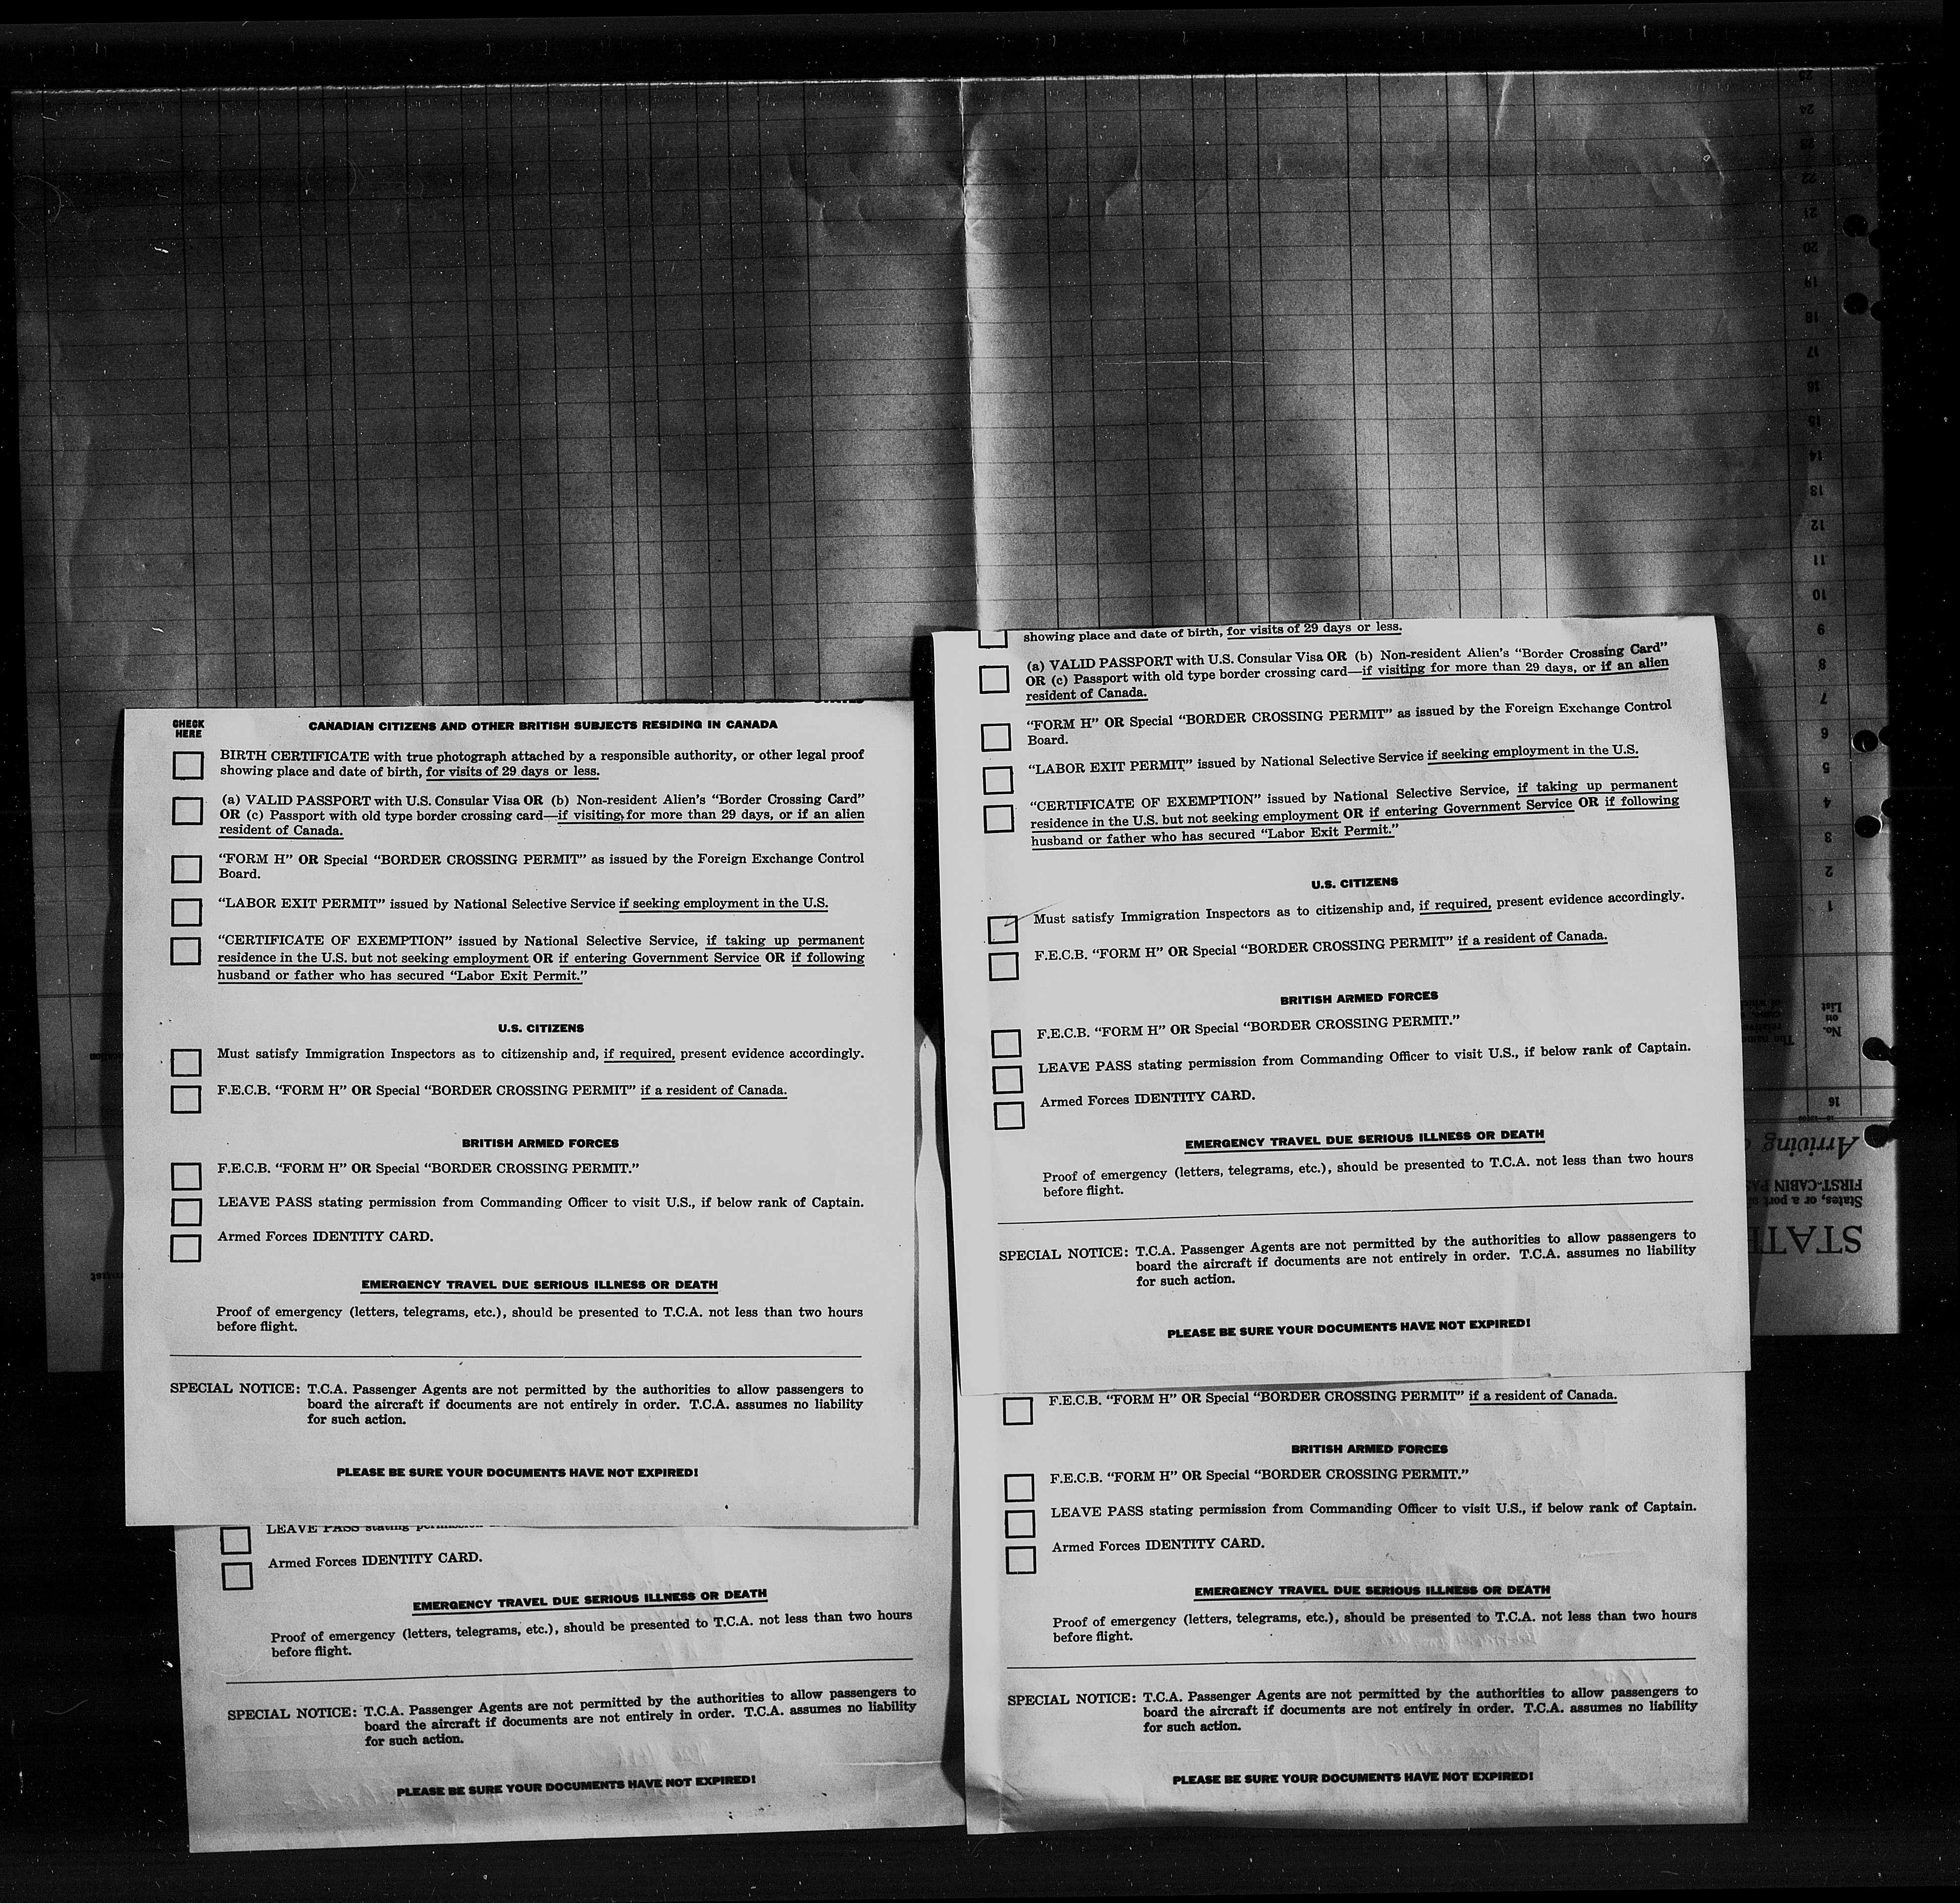 CHECK
HERE
CANADIAN CITIZENS AND OTHER BRITISH SUBJECTS RESIDING IN CANADA
BIRTH CERTIFICATE with true photograph attached by a responsible authority, or other legal proof
showing place and date of birth, for visits of 29 days or less.
(a) VALID PASSPORT with U.S. Consular Visa OR (b) Non-resident Alien's “Border Crossing Card”
OR (c) Passport with old type border crossing card—if visiting for more than 29 days, or if an alien
resident of Canada.
“FORM H” OR Special “BORDER CROSSING PERMIT” as issued by the Foreign Exchange Control
Board.
“LABOR EXIT PERMIT” issued by National Selective Service if seeking employment in the U.S.
“CERTIFICATE OF EXEMPTION” issued by National Selective Service, if taking up permanent
residence in the U.S. but not seeking employment OR if entering Government Service OR if following
husband or father who has secured “Labor Exit Permit.”
U.S. CITIZENS
Must satisfy Immigration Inspectors as to citizenship and, if required, present evidence accordingly.
F.E.C.B. “FORM H” OR Special “BORDER CROSSING PERMIT” if a resident of Canada.
BRITISH ARMED FORCES
F.E.C.B. “FORM H” OR Special “BORDER CROSSING PERMIT.”
LEAVE PASS stating permission from Commanding Officer to visit U.S., if below rank of Captain.
Armed Forces IDENTITY CARD.
EMERGENCY TRAVEL DUE SERIOUS ILLNESS OR DEATH
Proof of emergency (letters, telegrams, etc.), should be presented to T.C.A. not less than two hours
before flight.
SPECIAL NOTICE: T.C.A. Passenger Agents are not permitted by the authorities to allow passengers to
board the aircraft if documents are not entirely in order. T.C.A. assumes no liability
for such action.
PLEASE BE SURE YOUR DOCUMENTS HAVE NOT EXPIRED!
LEAVE PASS stating
Armed Forces IDENTITY CARD.
EMERGENCY TRAVEL DUE SERIOUS ILLNESS OR DEATH
Proof of emergency (letters, telegrams, etc.), should be presented to T.C.A. not less than two hours
before flight.
SPECIAL NOTICE: T.C.A. Passenger Agents are not permitted by the authorities to allow passengers to
board the aircraft if documents are not entirely in order. T.C.A. assumes no liability
for such action.
PLEASE BE SURE YOUR DOCUMENTS HAVE NOT EXPIRED!
showing place and date of birth, for visits of 29 days or less.
(a) VALID PASSPORT with U.S. Consular Visa OR (b) Non-resident Alien's “Border Crossing Card”
OR (c) Passport with old type border crossing card—if visiting for more than 29 days, or if an alien
resident of Canada.
“FORM H” OR Special “BORDER CROSSING PERMIT” as issued by the Foreign Exchange Control
Board.
“LABOR EXIT PERMIT” issued by National Selective Service if seeking employment in the U.S.
“CERTIFICATE OF EXEMPTION” issued by National Selective Service, if taking up permanent
residence in the U.S. but not seeking employment OR if entering Government Service OR if following
husband or father who has secured “Labor Exit Permit.”
U.S. CITIZENS
Must satisfy Immigration Inspectors as to citizenship and, if required, present evidence accordingly.
F.E.C.B. “FORM H” OR Special “BORDER CROSSING PERMIT” if a resident of Canada.
BRITISH ARMED FORCES
F.E.C.B. “FORM H” OR Special “BORDER CROSSING PERMIT.”
LEAVE PASS stating permission from Commanding Officer to visit U.S., if below rank of Captain.
Armed Forces IDENTITY CARD.
EMERGENCY TRAVEL DUE SERIOUS ILLNESS OR DEATH
Proof of emergency (letters, telegrams, etc.), should be presented to T.C.A. not less than two hours
before flight.
SPECIAL NOTICE: T.C.A. Passenger Agents are not permitted by the authorities to allow passengers to
board the aircraft if documents are not entirely in order. T.C.A. assumes no liability
for such action.
PLEASE BE SURE YOUR DOCUMENTS HAVE NOT EXPIRED!
F.E.C.B. “FORM H” OR Special “BORDER CROSSING PERMIT” if a resident of Canada.
BRITISH ARMED FORCES
F.E.C.B. “FORM H” OR Special “BORDER CROSSING PERMIT.”
LEAVE PASS stating permission from Commanding Officer to visit U.S., if below rank of Captain.
Armed Forces IDENTITY CARD.
EMERGENCY TRAVEL DUE SERIOUS ILLNESS OR DEATH
Proof of emergency (letters, telegrams, etc.), should be presented to T.C.A. not less than two hours
before flight.
SPECIAL NOTICE: T.C.A. Passenger Agents are not permitted by the authorities to allow passengers to
board the aircraft if documents are not entirely in order. T.C.A. assumes no liability
for such action.
PLEASE BE SURE YOUR DOCUMENTS HAVE NOT EXPIRED!
STATE
States, or a port
FIRST-CABIN
Arriving
16
No.
on
List
1
2
3
4
5
6
7
8
9
10
11
12
13
14
15
16
17
18
19
20
21
22
23
24
25